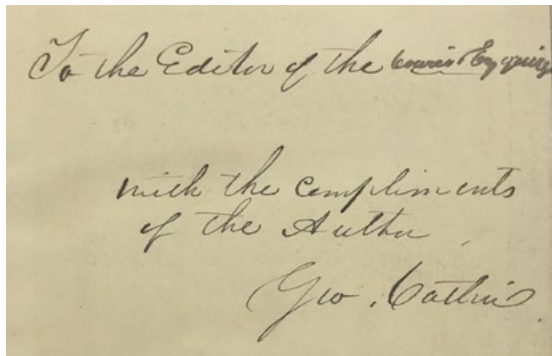 To the Editor of the Courier & Enquirer
with the compliments
of the Author,
Geo. Catlin.